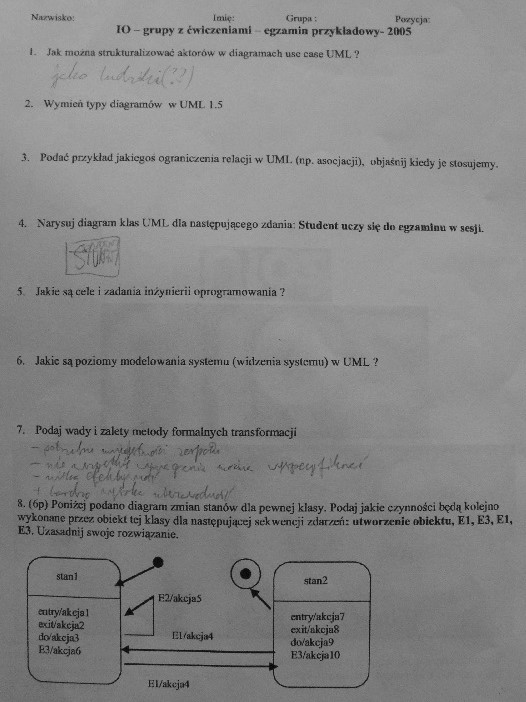 Nazwisko: Imię: Grupa : Pozycja:
IO – grupy z ćwiczeniami – egzamin przykładowy- 2005
1. Jak można strukturalizować aktorów w diagramach use case UML ?
jako ludziki(??)
2. Wymień typy diagramów w UML 1.5
3. Podać przykład jakiegoś ograniczenia relacji w UML (np. asocjacji), objaśnij kiedy je stosujemy.
4. Narysuj diagram klas UML dla następującego zdania: Student uczy się do egzaminu w sesji.
STUDENT
5. Jakie są cele i zadania inżynierii oprogramowania ?
6. Jakie są poziomy modelowania systemu (widzenia systemu) w UML ?
7. Podaj wady i zalety metody formalnych transformacji
- potrzebne umiejętności zespołu
- nie wszystkie wymagania można wyspecyfikować
+ bardzo
8. (6p) Poniżej podano diagram zmian stanów dla pewnej klasy. Podaj jakie czynności będą kolejno
wykonane przez obiekt tej klasy dla następującej sekwencji zdarzeń: utworzenie obiektu, E1, E3, E1,
E3. Uzasadnij swoje rozwiązanie.
stan1
entry/akcja1
exit/akcja2
do/akcja3
E3/akcja6
E2/akcja5
E1/akcja4
E1/akcja4
stan2
entry/akcja7
exit/akcja8
do/akcja9
E3/akcja10